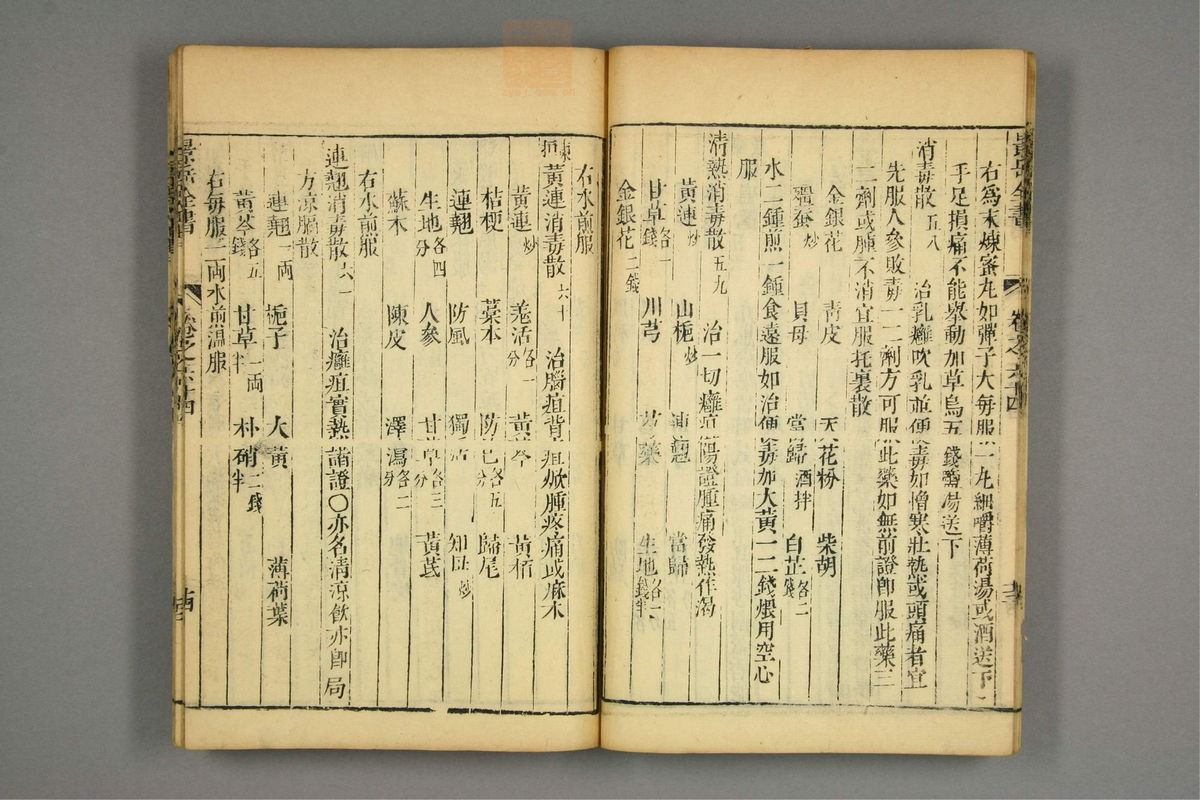 右爲末煉蜜丸如彈子大每服一丸細嚼薄荷湯或酒送下
手足損痛不能舉動加草烏五錢薑湯送下
消毒散 五八 治乳癰吹乳並便毒如憎寒壯熱或頭痛者宜
先服人參敗毒一二劑方可服此藥如無前證即服此藥三
二劑或腫不消宜服托裏散
金銀花 青皮 天花粉 柴胡
殭蚕炒 貝母 當歸酒拌 白芷各二錢
水二鍾煎一鍾食遠服如治便毒加大黃一二錢煨用空心
服
清熱消毒散 五九 治一切癰疽陽證腫痛發熱作渴
黃連炒 山梔炒 連翹 當歸
甘草各一錢 川芎 芍藥 生地各一錢半
金銀花二錢
右水前服
黃連消毒散 六十 治腦疽背疽焮腫疼痛或麻木
黃連炒 羗活各一分 黃芩 黃栢
桔梗 藁本 防己各五分 歸尾
連翹 防風 獨活 知母炒
生地各四分 人參 甘草各三分 黃茋
蘇木 陳皮 澤瀉各二分
右水前服
連翹消毒散 六一 治癰疽實熱諸證○亦名清涼飲亦即局
方涼膈散
連翹一兩 梔子 大黃 薄荷葉
黃芩各五錢 甘草一兩半 朴硝二錢半
右每服一兩水前溫服
景岳全書
卷之六十四